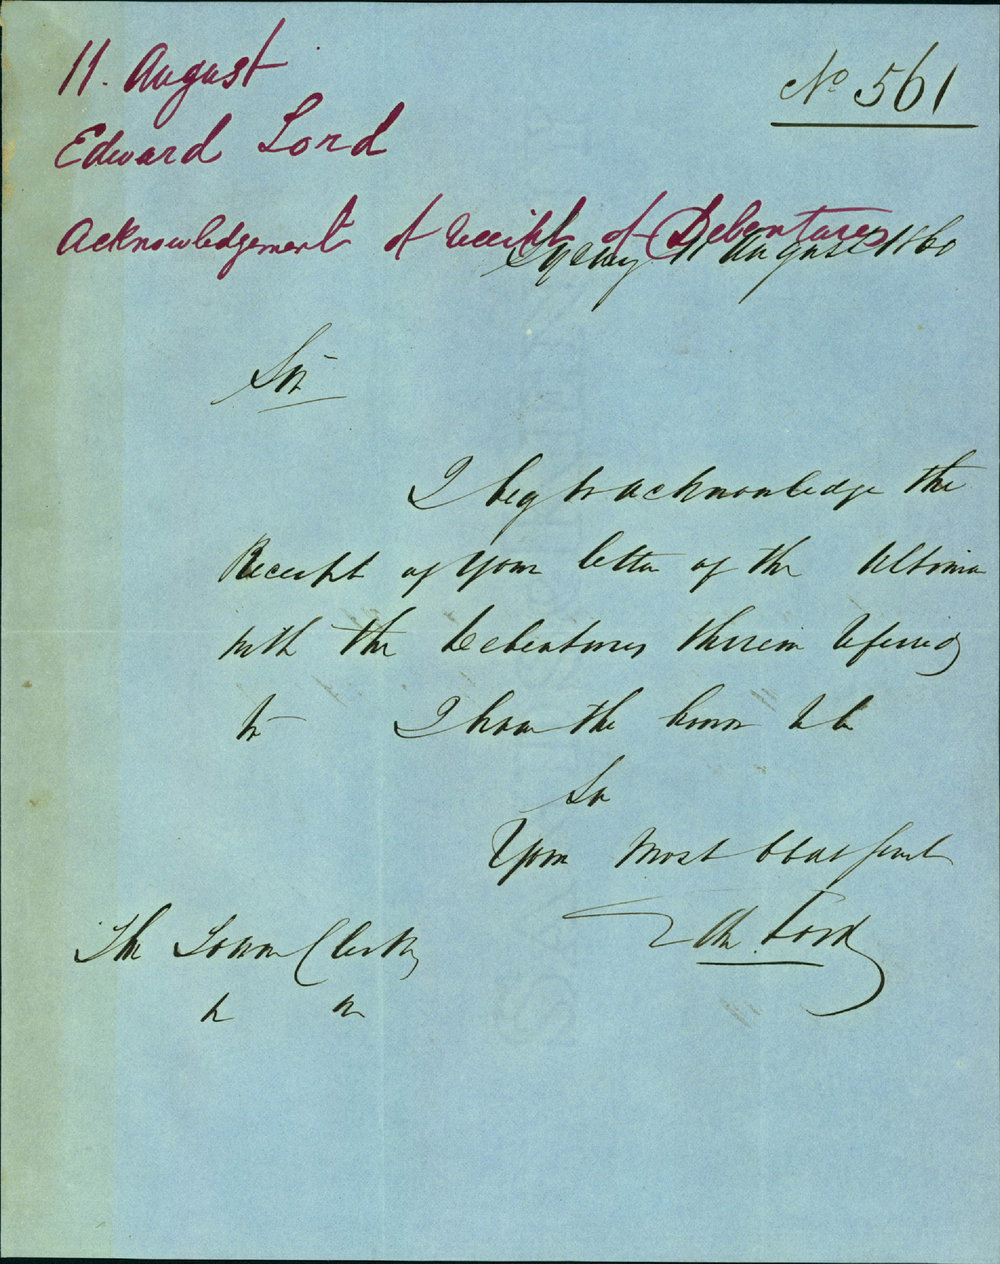 11. August
Nº 561
Edward Lord
Acknowledgement of receipt of Debentures
Sydney 11 August 1860
Sir
I beg to acknowledge the
Receipt of your letter of the
with the Debentures therein referred
to I have the honor to be
Sir
Your Most Obdt Servt
Edw. Lord
The Town Clerk